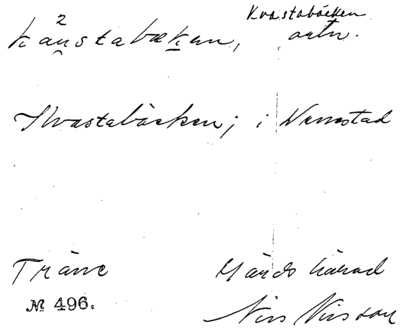 Kvastabäcken
kånstabæken, artn.
Kvastabäcken; i Vemstad
Träne Gärds härad
№ 496. Nils Nilsson